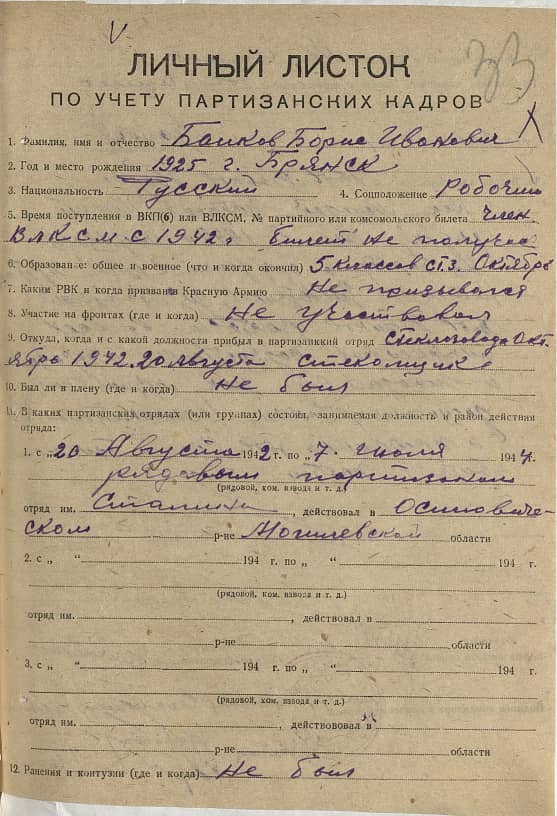 V
33
ЛИЧНЫЙ ЛИСТОК
ПО УЧЕТУ ПАРТИЗАНСКИХ КАДРОВ
1. Фамилия, имя и отчество Баиков Борис Иванович
2. Год и место рождения 1925 г. Брянск
3. Национальность Русский 4. Соцположение Рабочий
5. Время поступления в ВКП(б) или ВЛКСМ, № партийного или комсомольского билета член
ВЛКСМ с 1942 г билет не получил
6. Образование: общее и военное (что и когда окончил) 5 классов ст.з. Октябрь
7. Каким РВК и когда призван в Красную Армию Не призывался
8. Участие на фронтах (где и когда) Не участвовал
9. Откуда, когда и с какой должности прибыл в партизанский отряд стеклозавода Окт
ябрь 1942 20 августа стекольщик
10. Был ли в плену (где и когда) не был
11. В каких партизанских отрядах (или группах) состоял, занимаемая должность и район действия
отряда:
1. с „20 Августа 1942 г. по „7. июля 1944 г.
рядовым партизаном
(рядовой, ком. взвода и т. д.)
отряд им. Сталина, действовал в Осипович-
ском р-не Могилевской области
2. с „ “ 194 г. по „ “ 194 г.
(рядовой, ком. взвода и т. д.)
отряд им. , действовал в
р-не области
3. с „ “ 194 г. по „ “ 194 г.
(рядовой, ком. взвода и т. д.)
отряд им. , действовал в
р-не области
12. Ранения и контузии (где и когда) не был